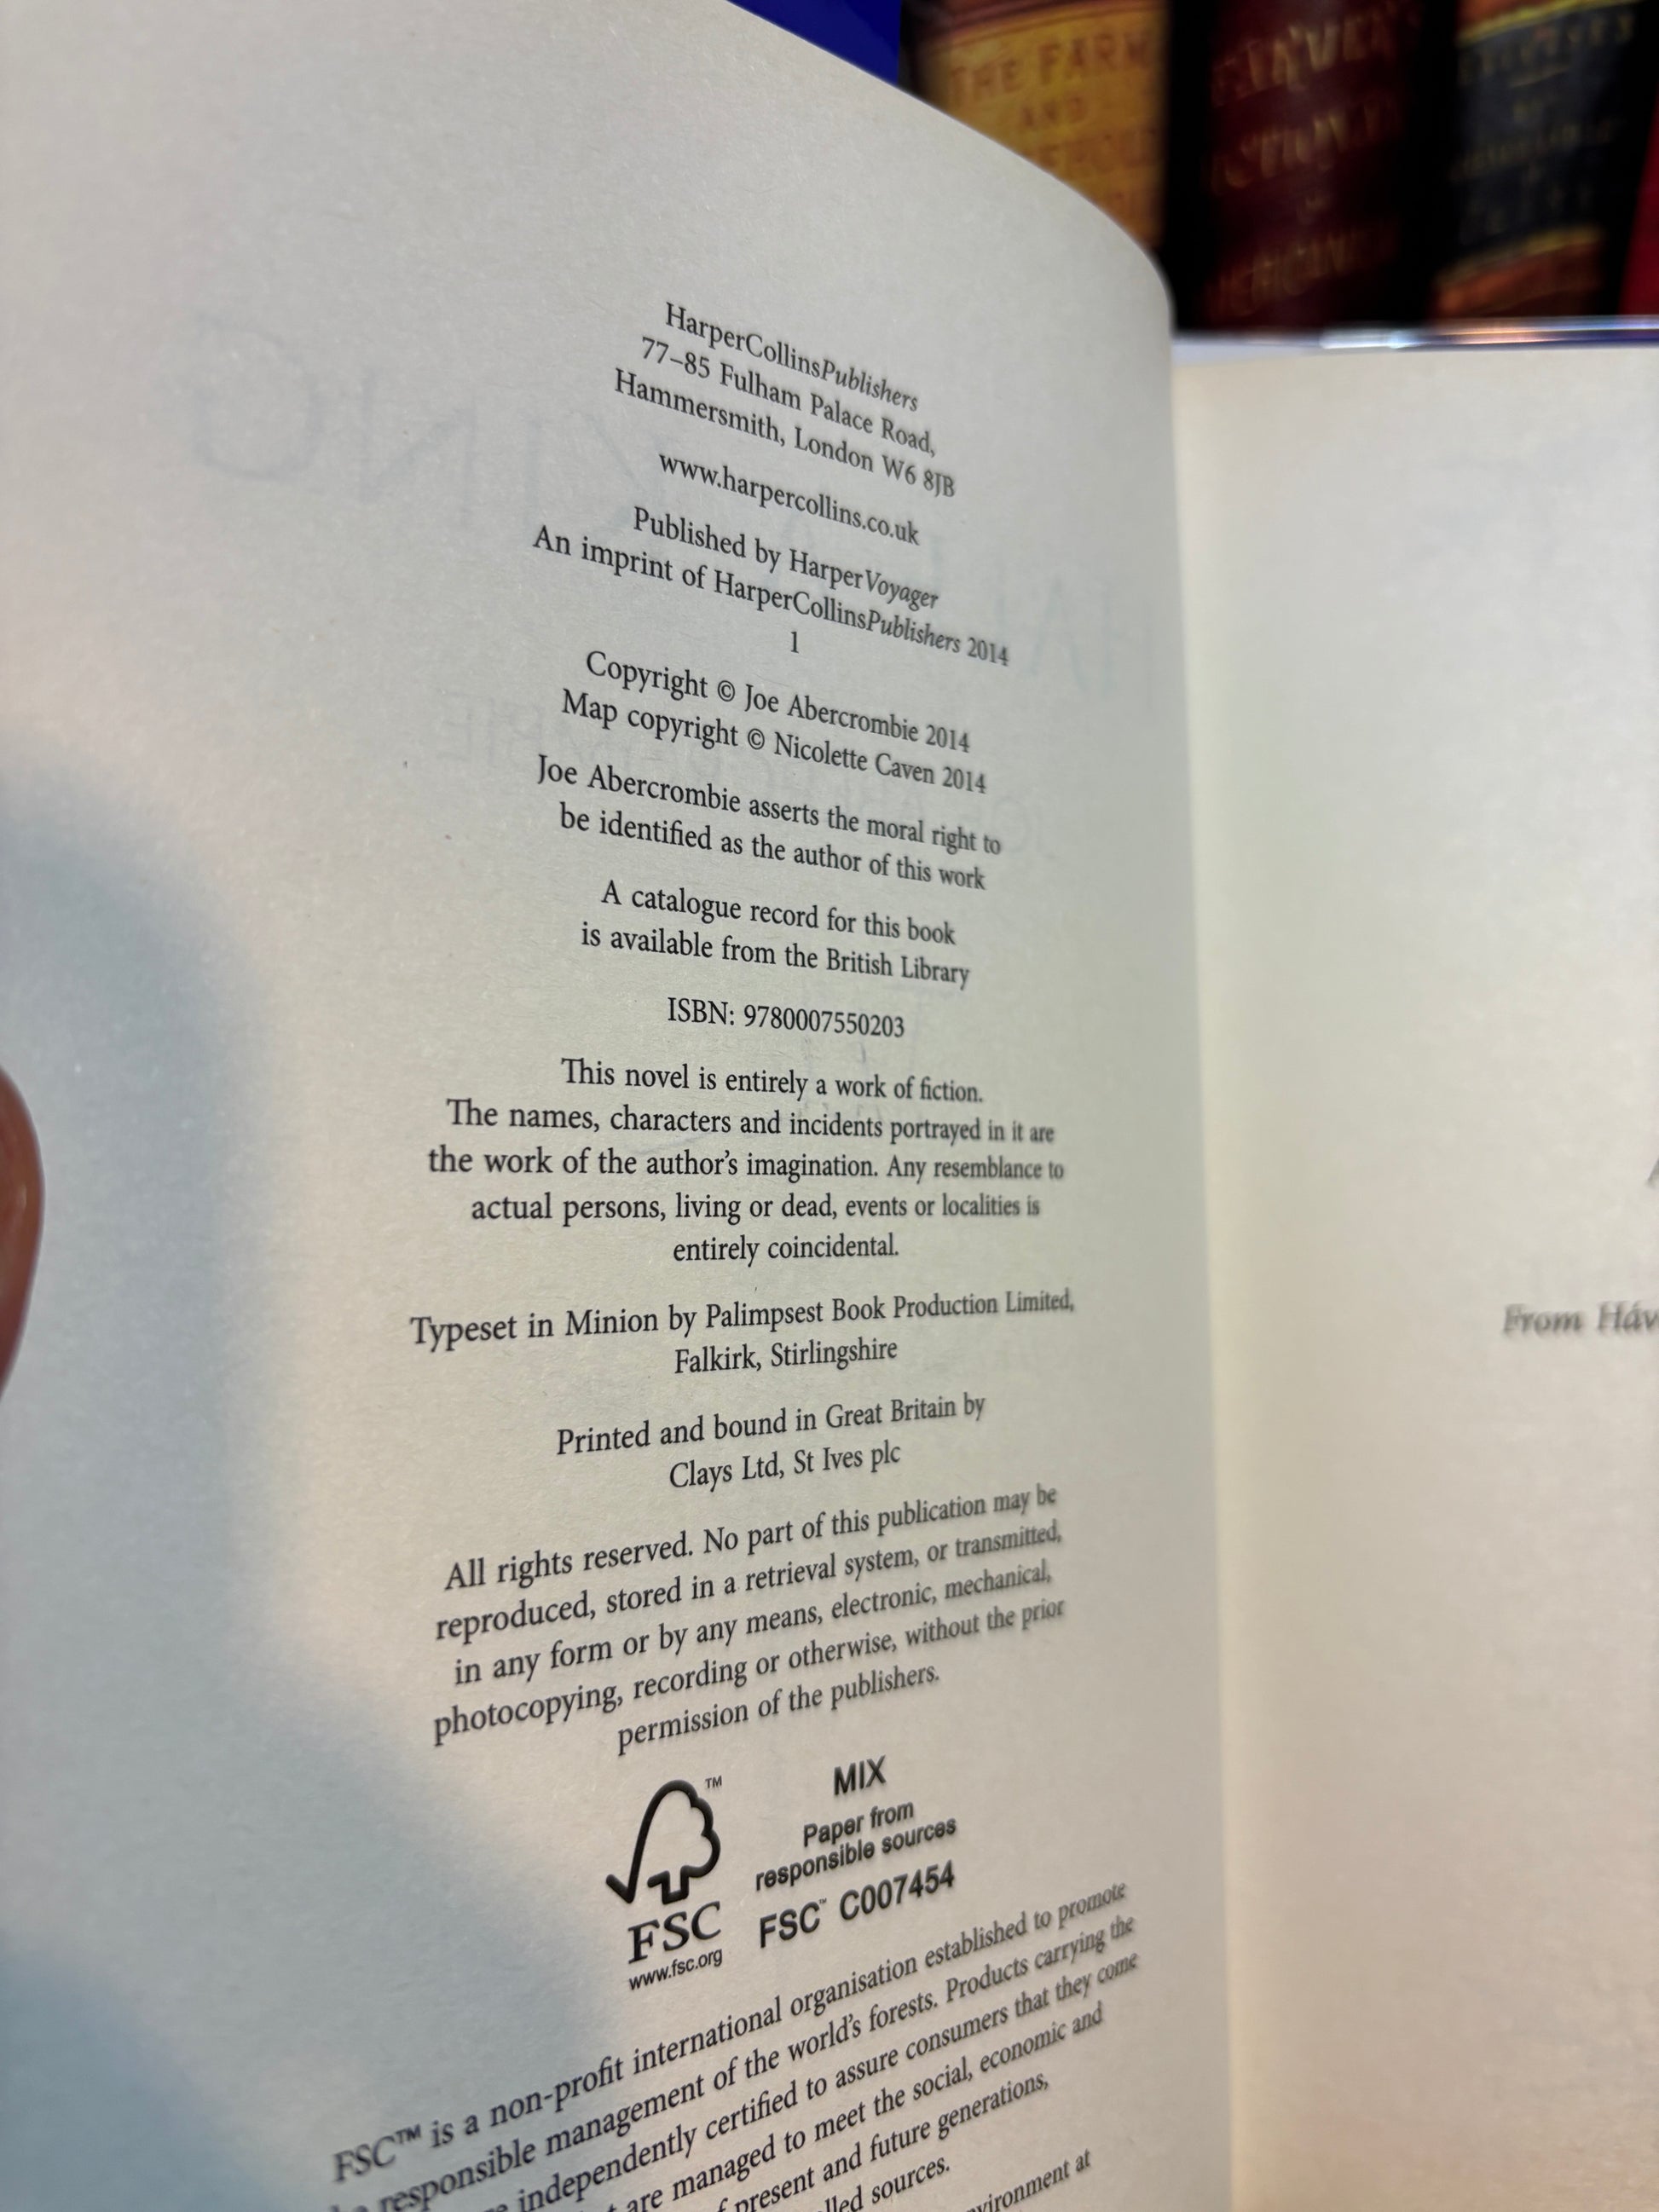 THE FARM
AND
HarperCollinsPublishers
77–85 Fulham Palace Road,
Hammersmith, London W6 8JB
www.harpercollins.co.uk
Published by HarperVoyager
An imprint of HarperCollinsPublishers 2014
1
Copyright © Joe Abercrombie 2014
Map copyright © Nicolette Caven 2014
Joe Abercrombie asserts the moral right to
be identified as the author of this work
A catalogue record for this book
is available from the British Library
ISBN: 9780007550203
This novel is entirely a work of fiction.
The names, characters and incidents portrayed in it are
the work of the author’s imagination. Any resemblance to
actual persons, living or dead, events or localities is
entirely coincidental.
Typeset in Minion by Palimpsest Book Production Limited,
Falkirk, Stirlingshire
Printed and bound in Great Britain by
Clays Ltd, St Ives plc
All rights reserved. No part of this publication may be
reproduced, stored in a retrieval system, or transmitted,
in any form or by any means, electronic, mechanical,
photocopying, recording or otherwise, without the prior
permission of the publishers.
™
FSC
www.fsc.org
MIX
Paper from
responsible sources
FSC™ C007454
FSC™ is a non-profit international organisation established to promote
responsible management of the world’s forests. Products carrying the
independently certified to assure consumers that they come
are managed to meet the social, economic and
present and future generations,
sources.
at
From